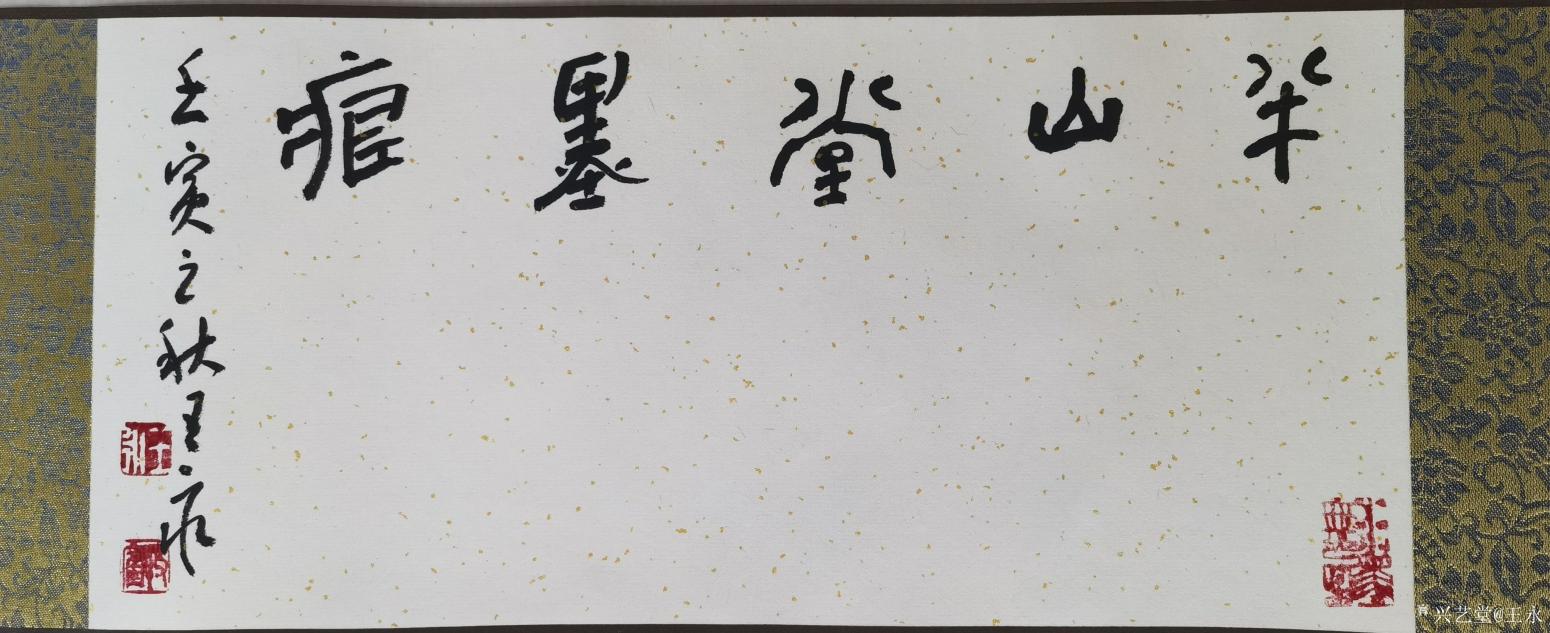 半山堂墨痕
壬寅之秋王永
兴艺堂@王永